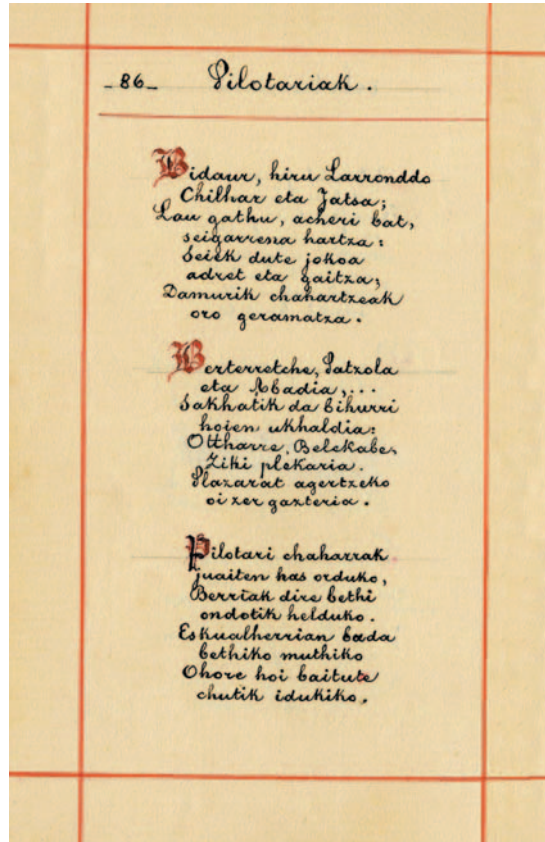 _86_ Pilotariak.
Bidaur, hiru Larronddo
Chilhar eta Jatsa;
Lau gathu, acheri bat,
seigarrena hartza:
Seiek dute jokoa
adret eta gaitza;
Damurik chahartzeak
oro geramatza.
Berterretche, Patzola
eta Abadia,...
Sakhatik da bihurri
hoien ukhaldia:
Ottharre, Belekabe,
Ziki plekaria.
Plazarat agertzeko
oi zer gazteria.
Pilotari chaharrak
juaiten has orduko,
Berriak dire bethi
ondotik helduko.
Eskualherrian bada
bethiko muthiko
Ohore hoi baitute
chutik idukiko.